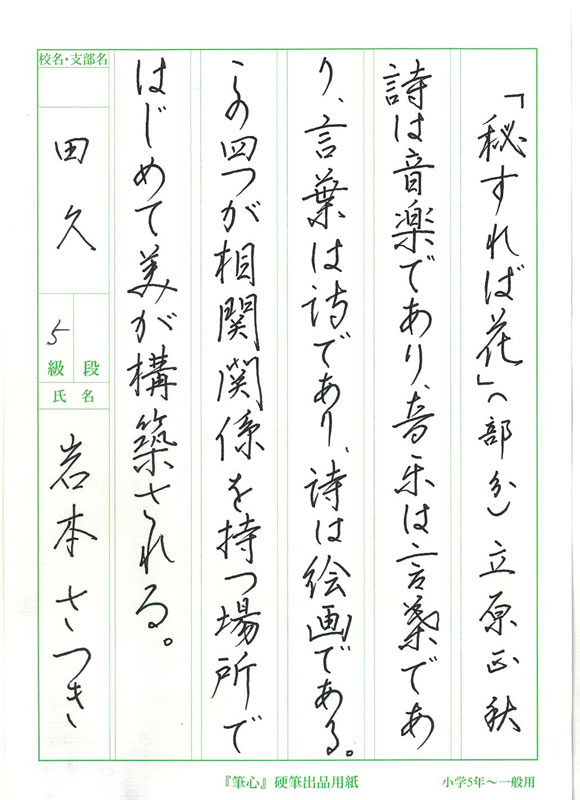 「秘すれば花」(部分) 立原正秋
詩は音楽であり、音楽は言葉であ
り、言葉は詩であり、詩は絵画である。
この四つが相関関係を持つ場所で
はじめて美が構築される。
校名・支部名
田久
5
級 段
氏名
岩本さつき
『筆心』硬筆出品用紙
小学5年〜一般用